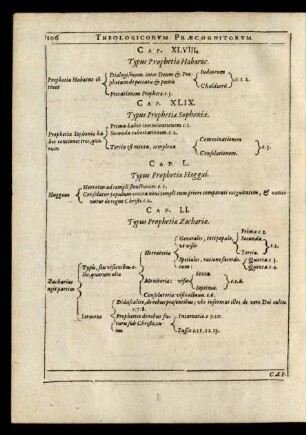 106 THEOLOGICORVM PRÆCOGNITORVM
CAP. XLVIII.
Typus Prophetiæ Habacuc.
Prophetia Habacuc est
Dialogismum inter Deum & Prophetam de peccatis & pœnis
Iudæorum
Chaldæorū
c. 1. 2.
Precationem Prophetæ c. 3.
CAP. XLIX.
Typus Prophetiæ Sophoniæ.
Prophetia Sophoniæ habet conciones tres, quarum
Prima habet comminationem c. 1.
Secunda exhortationem c. 2.
Tertia est mixta, complexa
Comminationem
Consolationem.
c. 3.
CAP. L.
Typus Prophetiæ Haggai.
Haggæus
Hortatur ad templi structuram c. 1.
Consolatur populum contra novi templi cum priore comparati exiguitatem, & vaticinatur de regno Christi c. 2.
CAP. LI.
Typus Prophetiæ Zachariæ.
Zacharias agit partim
Typis, seu visionibus illis, quarum alia
Hortatoria
Generales, toti populo, ut visio
Prima c. 1.
Secunda
Tertia
Speciales, ratione
Quarta c. 3.
Quinta c. 4.
Monitoria: visio
Sexta
Septima
c. 5.
Consolatoria: visio octava. c. 6.
Sermone
Didascalico, de rebus præsentibus; ubi informat illos de vero Dei cultu. c. 7. 8.
Prophetico de rebus futuris sub Christo,
Incarnato c. 9. 10.
Passo c. 11. 12. 13.
CAP.